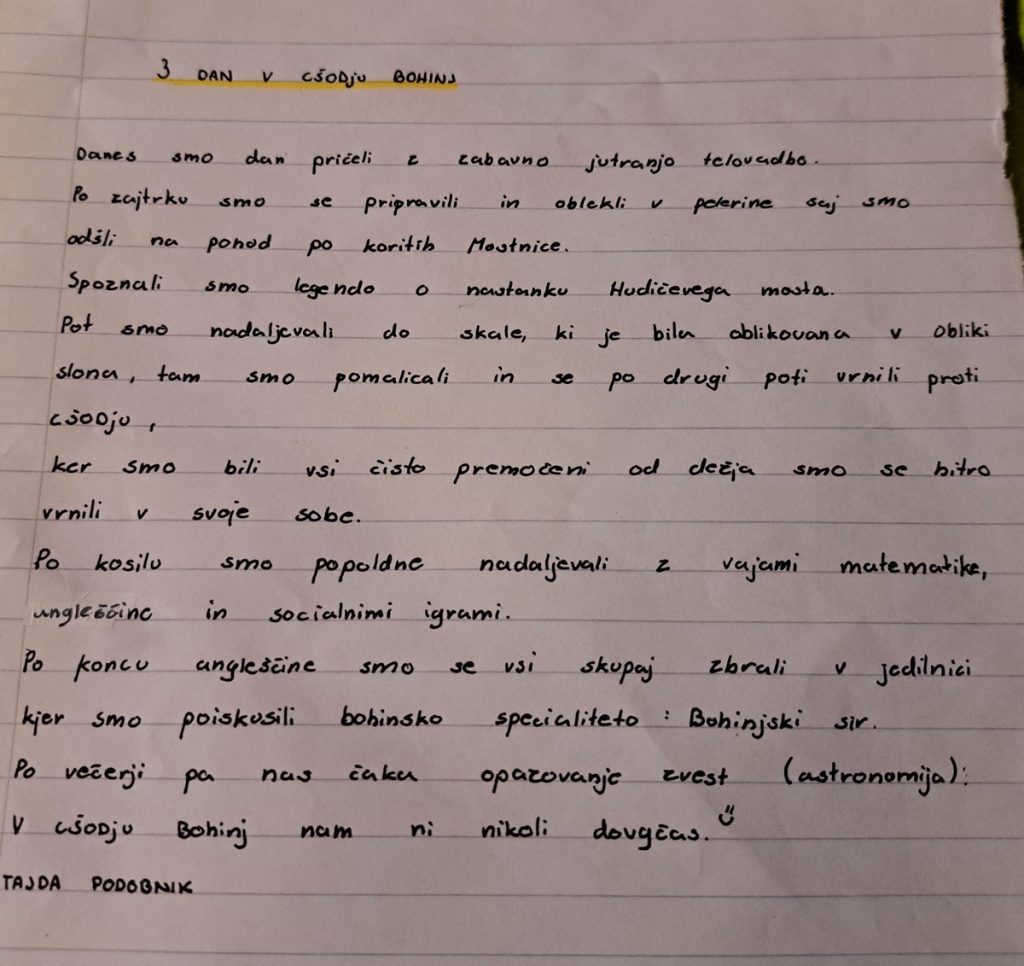 3 DAN V CŠODju BOHINJ
Danes smo dan pričeli z zabavno jutranjo telovadbo.
Po zajtrku smo se pripravili in oblekli v pelerine saj smo
odšli na pohod po koritih Mostnice.
Spoznali smo legendo o nastanku Hudičevega mosta.
Pot smo nadaljevali do skale, ki je bila oblikovana v obliki
slona, tam smo pomalicali in se po drugi poti vrnili proti
CŠODju,
ker smo bili vsi čisto premočeni od dežja smo se hitro
vrnili v svoje sobe.
Po kosilu smo popoldne nadaljevali z vajami matematike,
angleščine in socialnimi igrami.
Po koncu angleščine smo se vsi skupaj zbrali v jedilnici
kjer smo poiskusili bohinsko specialiteto : Bohinjski sir.
Po večerji pa nas čaka opazovanje zvest (astronomija):
V CŠODju Bohinj nam ni nikoli dovgčas.
TAJDA PODOBNIK